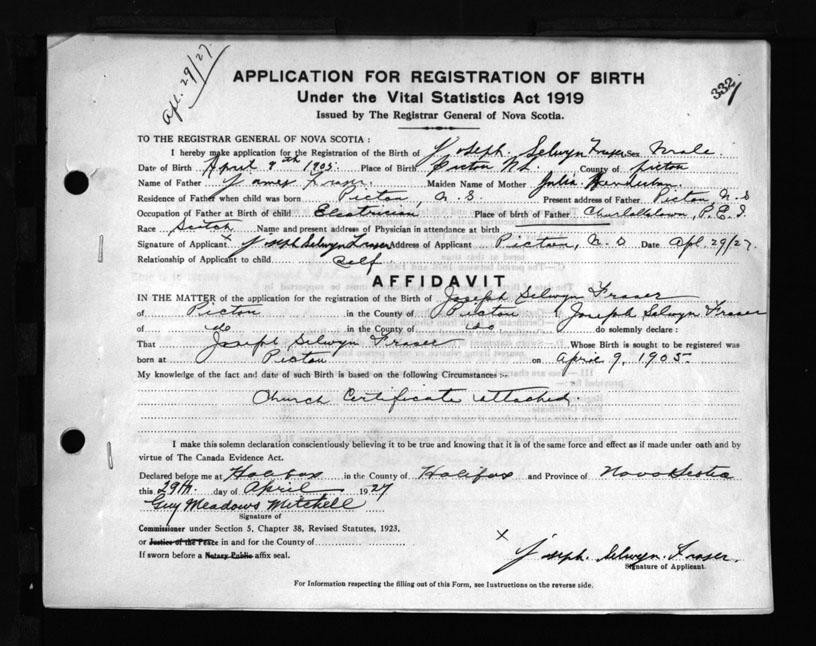 Apl. 29/27.
332
APPLICATION FOR REGISTRATION OF BIRTH
Under the Vital Statistics Act 1919
Issued by The Registrar General of Nova Scotia.
TO THE REGISTRAR GENERAL OF NOVA SCOTIA :
I hereby make application for the Registration of the Birth of Joseph Selwyn Fraser Sex Male
Date of Birth April 9th 1905. Place of Birth Pictou N.S. County of Pictou
Name of Father James Fraser. Maiden Name of Mother Julia Henderson
Residence of Father when child was born Pictou, N.S. Present address of Father Pictou N.S
Occupation of Father at Birth of child Electrician Place of birth of Father Charlottetown, P.E.I.
Race Scotch Name and present address of Physician in attendance at birth
Signature of Applicant x Joseph Selwyn Fraser Address of Applicant Pictou, N.S Date Apl. 29/27.
Relationship of Applicant to child Self
AFFIDAVIT
IN THE MATTER of the application for the registration of the Birth of Joseph Selwyn Fraser
of Pictou in the County of Pictou I Joseph Selwyn Fraser
of do in the County of do do solemnly declare :
That Joseph Selwyn Fraser Whose Birth is sought to be registered was
born at Pictou on April 9, 1905
My knowledge of the fact and date of such Birth is based on the following Circumstances :-
Church Certificate attached.
I make this solemn declaration conscientiously believing it to be true and knowing that it is of the same force and effect as if made under oath and by
virtue of The Canada Evidence Act.
Declared before me at Halifax in the County of Halifax and Province of Nova Scotia
this 29th day of April 1927
Guy Meadows Mitchell
Signature of
Commissioner under Section 5, Chapter 38, Revised Statutes, 1923.
or Justice of the Peace in and for the County of
If sworn before a Notary Public affix seal.
x Joseph. Selwyn. Fraser.
Signature of Applicant.
For Information respecting the filling out of this Form, see Instructions on the reverse side.